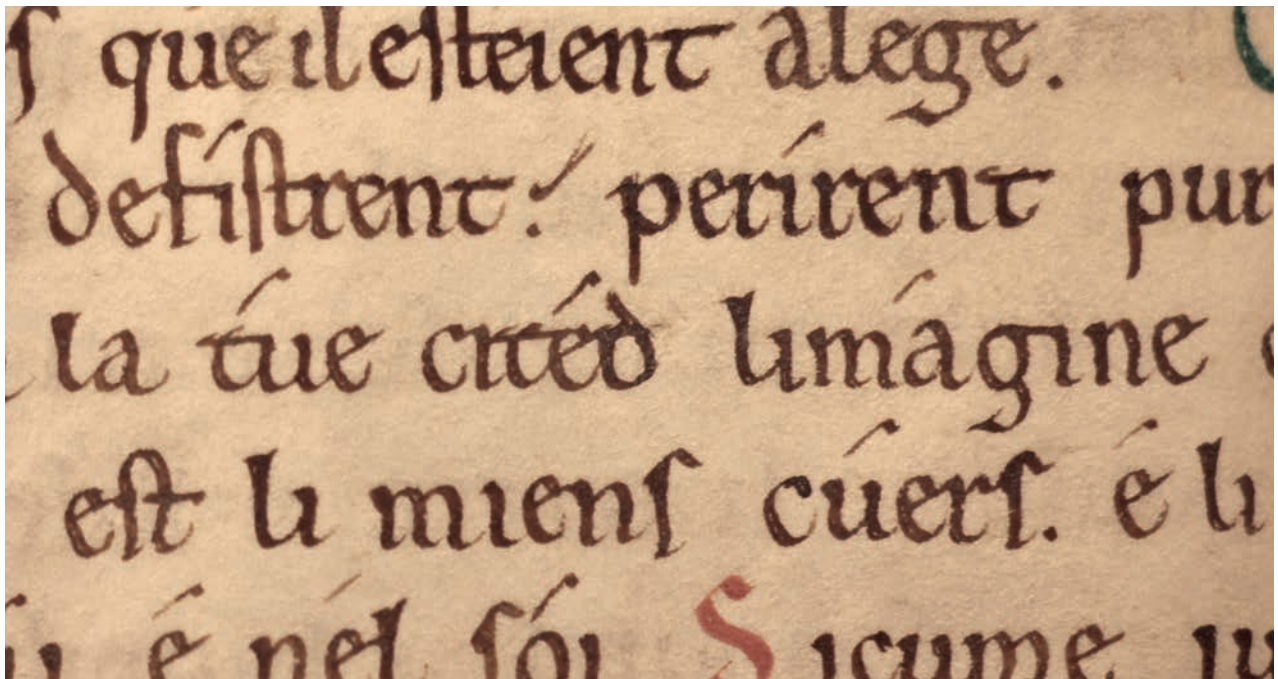 que il esteient alege.
defistrent: perirent pur
la túe citéd limágine
est li miens cúers. é li
é nél sói Sicume